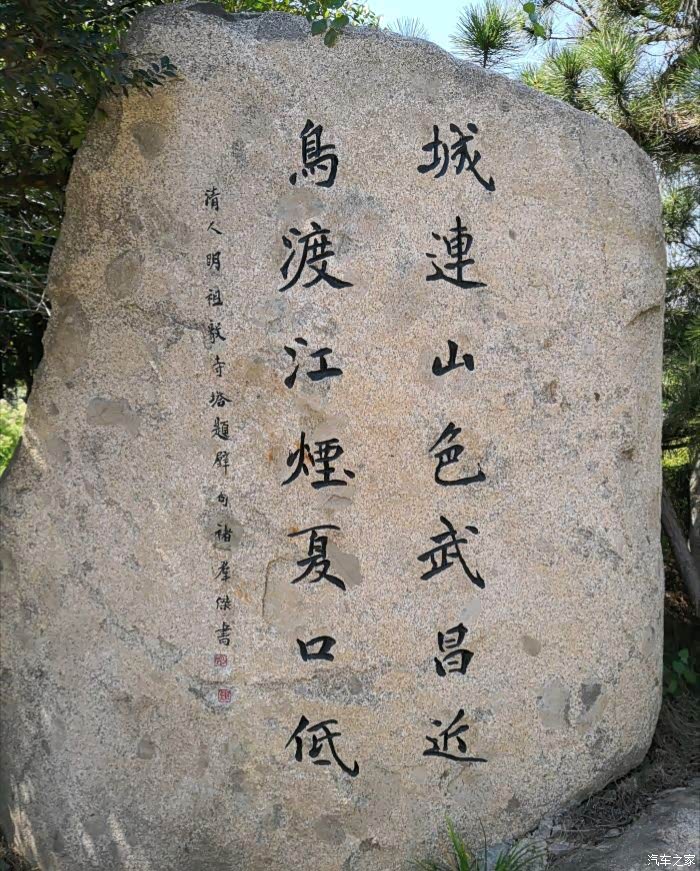 城連山色武昌近
鳥渡江煙夏口低
清人明祖敦寺塔題壁句褚孝傑書
汽车之家